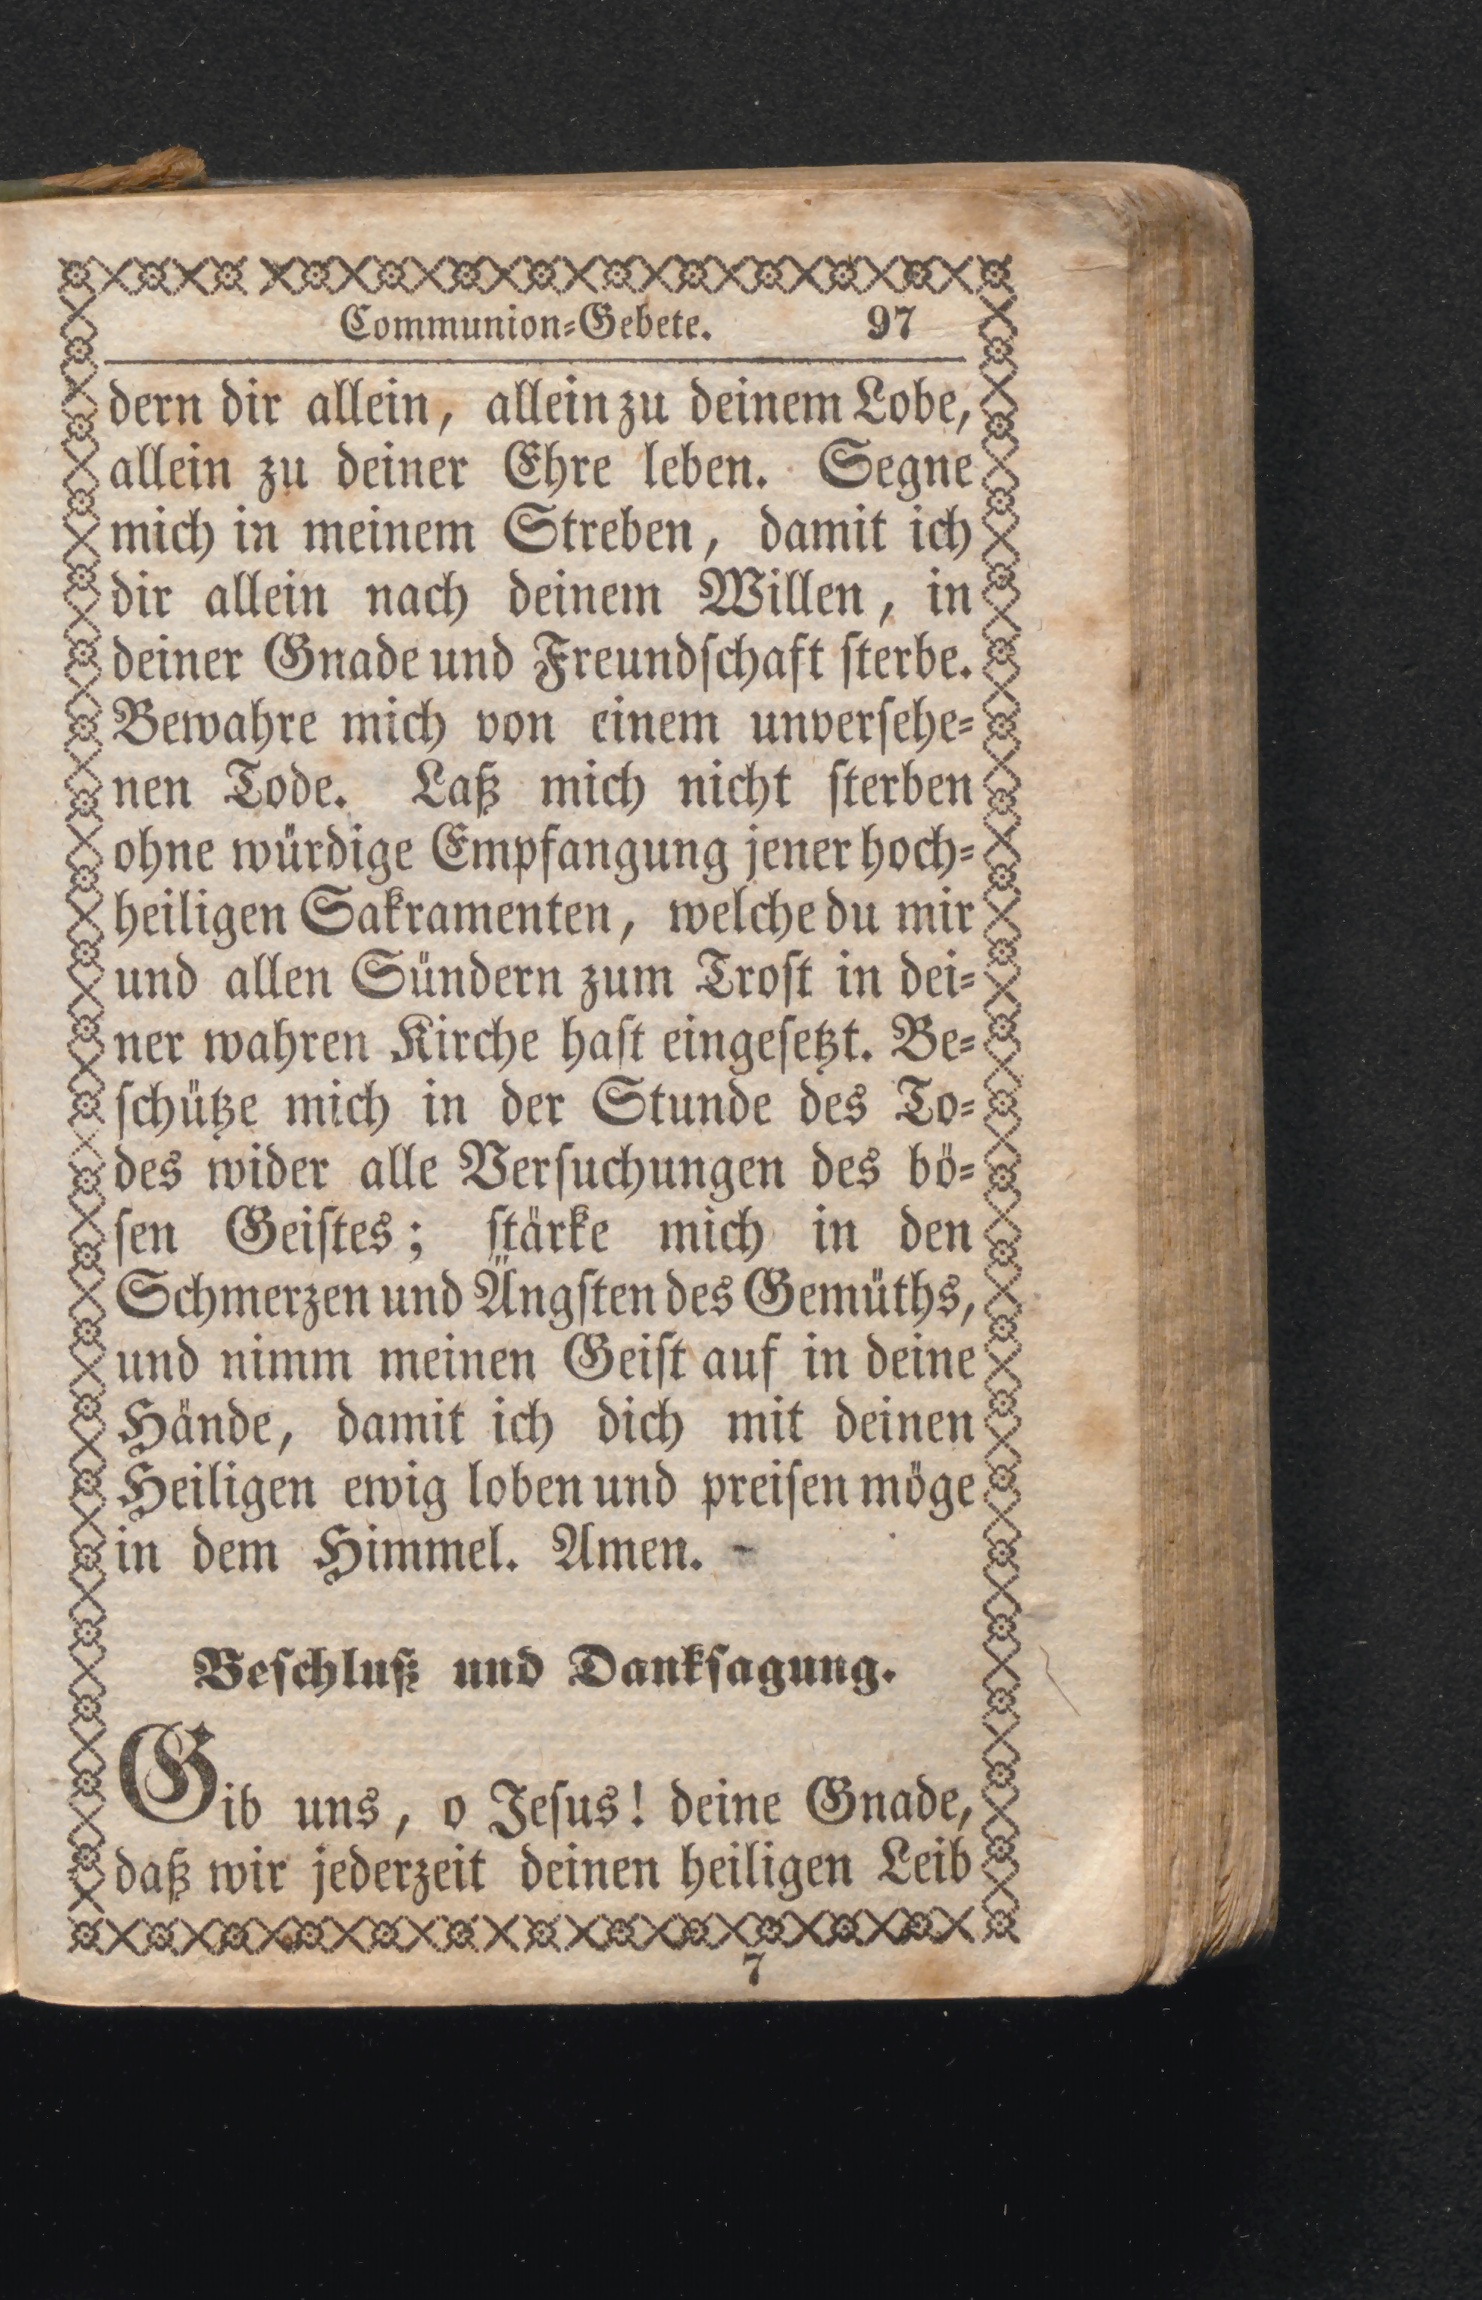 Communion-Gebete. 97
dern dir allein, allein zu deinem Lobe,
allein zu deiner Ehre leben. Segne
mich in meinem Streben, damit ich
dir allein nach deinem Willen, in
deiner Gnade und Freundschaft sterbe.
Bewahre mich von einem unversehe-
nen Tode. Laß mich nicht sterben
ohne würdige Empfangung jener hoch-
heiligen Sakramenten, welche du mir
und allen Sündern zum Trost in dei-
ner wahren Kirche hast eingesetzt. Be-
schütze mich in der Stunde des To-
des wider alle Versuchungen des bö-
sen Geistes; stärke mich in den
Schmerzen und Ängsten des Gemüths,
und nimm meinen Geist auf in deine
Hände, damit ich dich mit deinen
Heiligen ewig loben und preisen möge
in dem Himmel. Amen.
Beschluß und Danksagung.
Gib uns, o Jesus! deine Gnade,
daß wir jederzeit deinen heiligen Leib
7